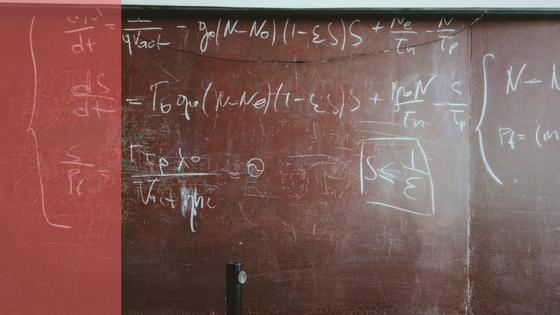 dN/dt = I/qVact - g₀(N-N₀)(1-εS)S + Ne/τn - N/τp
dS/dt = Γ₀g₀(N-N₀)(1-εS)S + N/τn - S/τp
S/Pf = Γτpλ₀/Vact ηhc =
S ≤ 1/ε
N =
Pf = (m